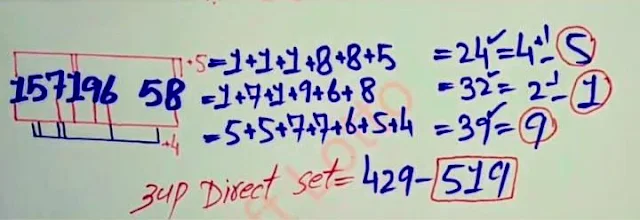 +5 =1+1+1+8+8+5 =24=4+1 5
157196 58 =1+7+1+9+6+8 =32= 2-1 1
+4 =5+5+7+7+6+5+4 =39= 9
3up Direct set= 429-519